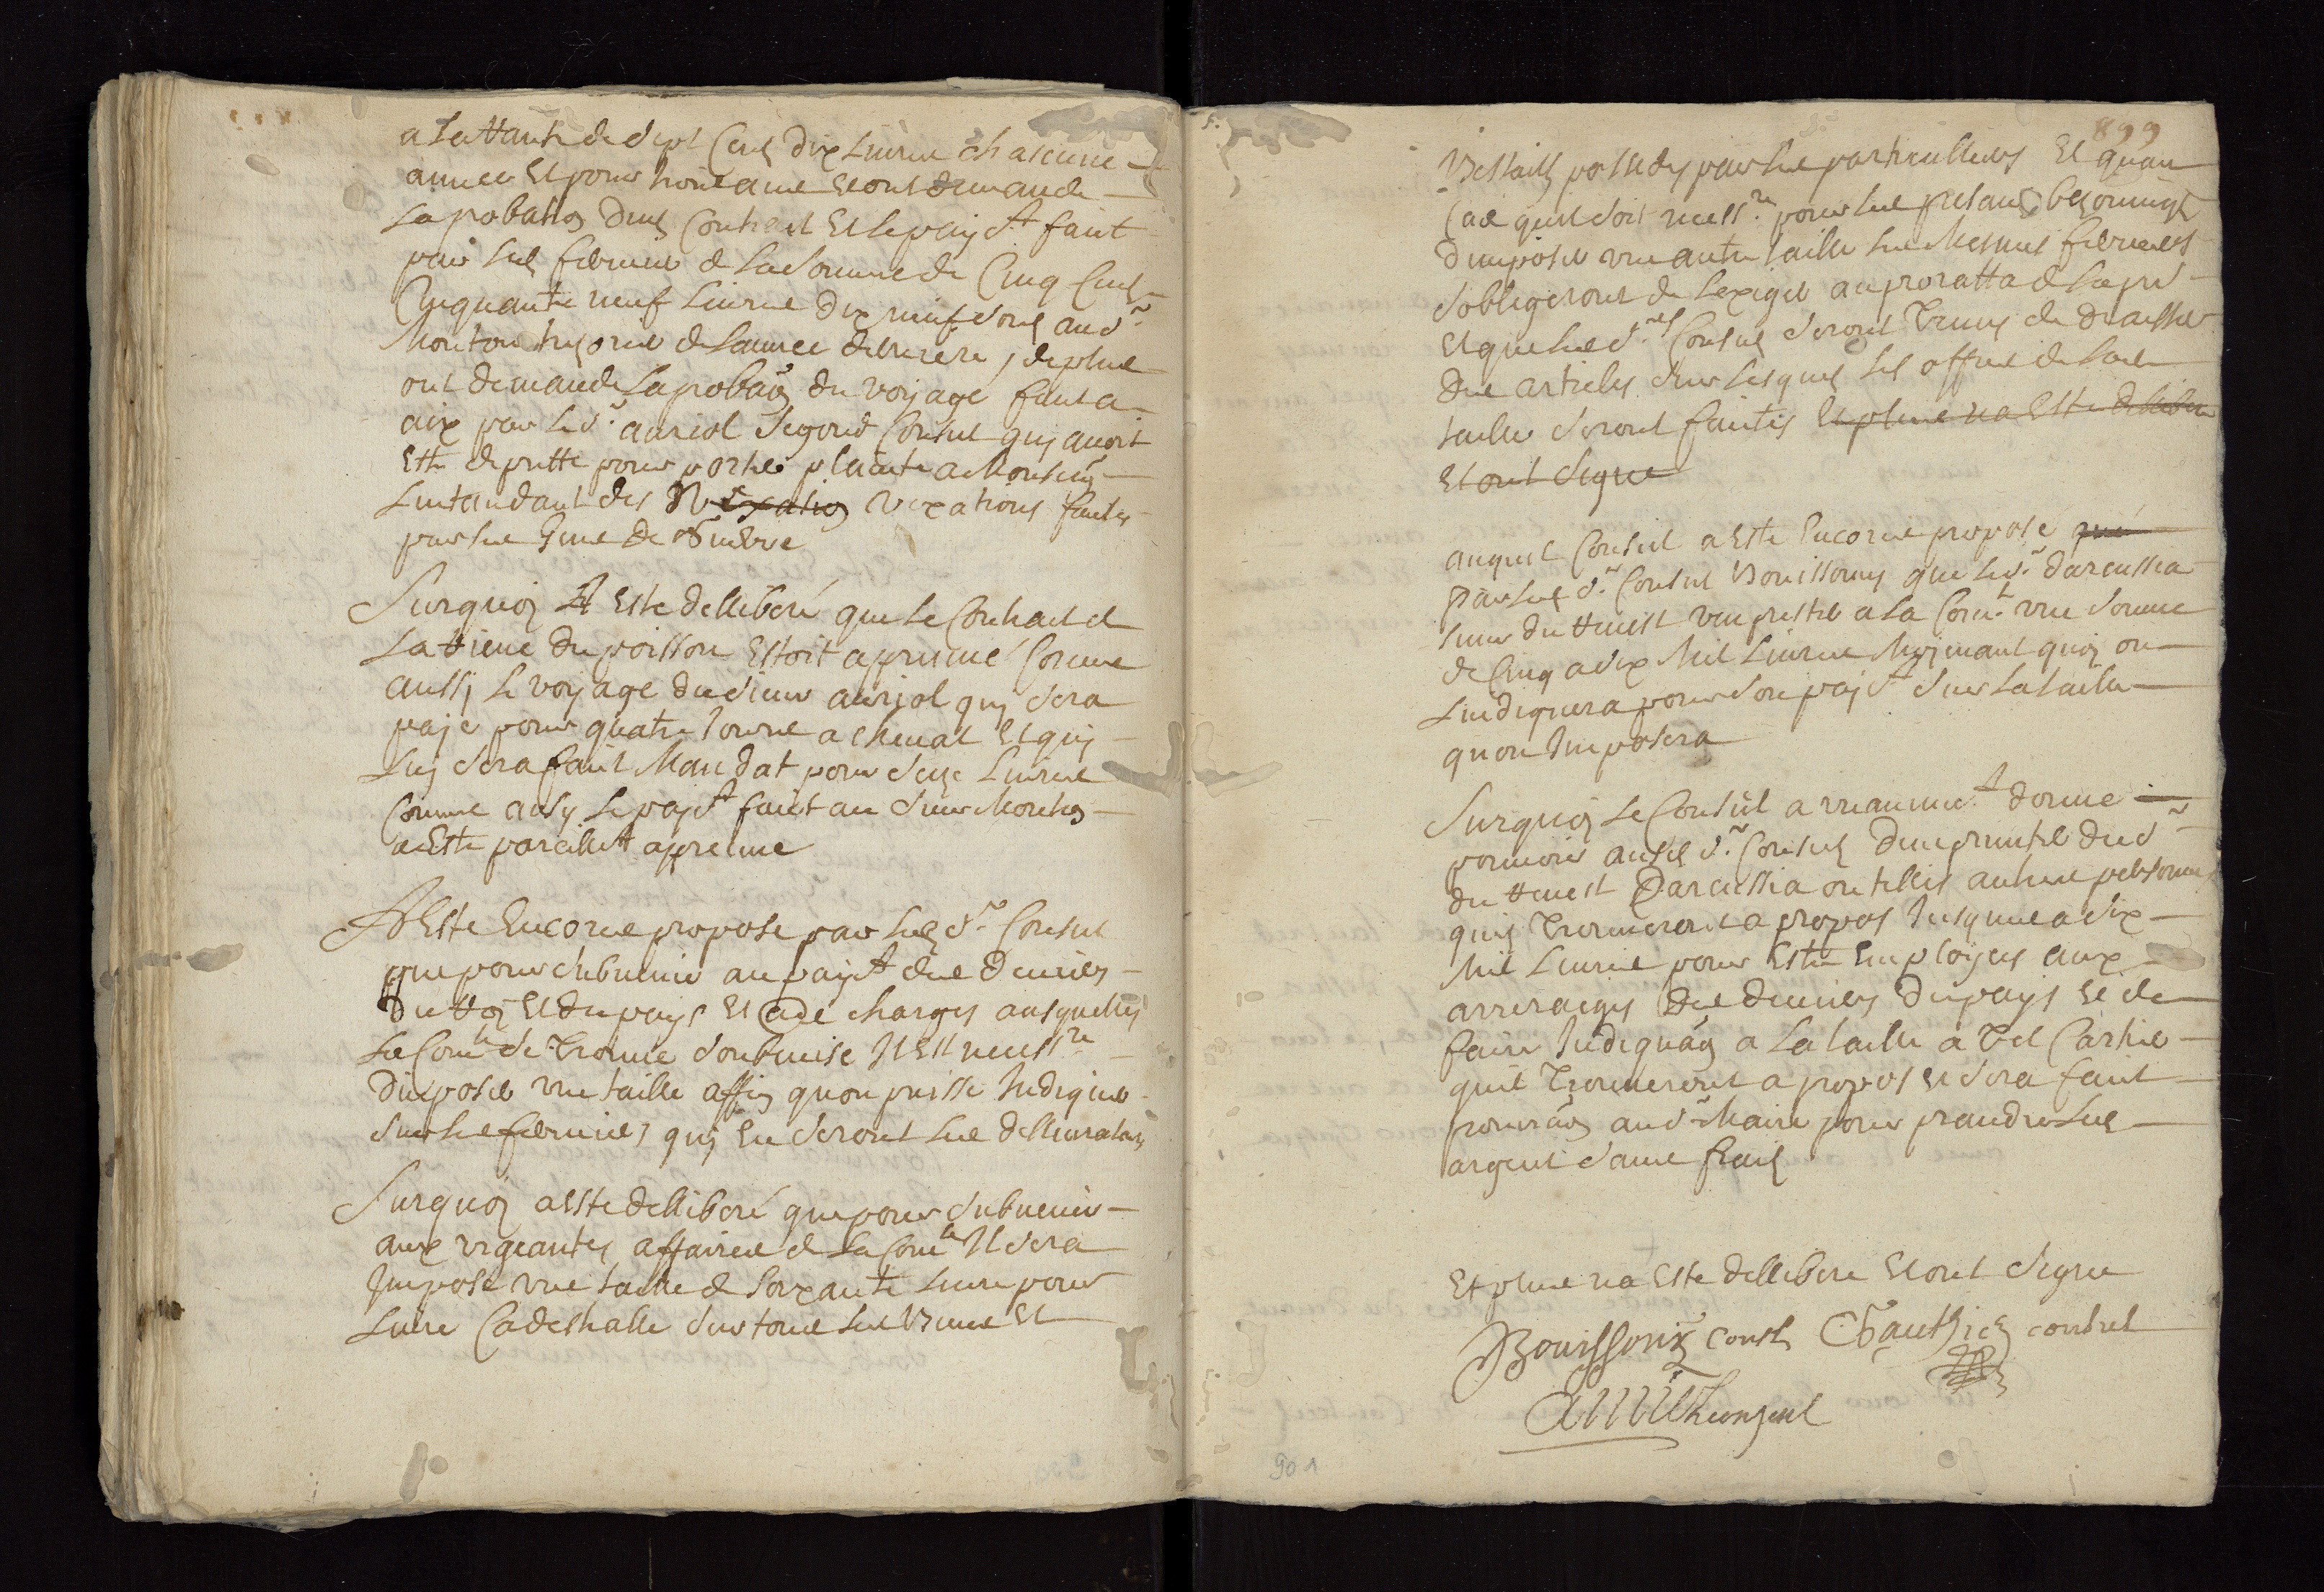 a la Rante de Sept Cens dix Livres chascune
annee Et pour trois annee Et ont demande
Laprobation duds Contract Et le payemt fait
par lesd fermiers de La Somme de Cinq Cens
Cinquante neuf Livres dix neuf sous au sr
Mouton tresorier de Lannee derniere, de plus
ont demande Laprobaon du voyage fait a
aix par le sr auriol segond Consul quy avoit
Este depute pour porter plainte a Monseigr
Lintandant des Vexation vexations faites
par les Gens de Guerre
Surquoy A Este delliberé que le Contract de
La Rieue du poisson Estoit aprouvé Comme
aussy le voyage du sieur auriol quy sera
payé pour quatre Jours a cheval Et quy
Luy sera fait Mandat pour seize Livres
Comme ausy le payt fait au sieur Mouton
a Este pareillemt aprouve
A Este Encores propose par lesd srs Consuls
que pour subvenir au payt des deniers
du Roy Et du pays Et au de charges ausquelles
La Comté se Trouve soubmise Il Est necessre
dimposer une taille affin quon puisse Indiquer
sur les fermiers quy En seront les dellivrataires
Surquoy a Este delliberé que pour subvenir
aux urgeantes affaires de La Comté Il sera
Impose une taille de soixante livres pour
Livre Cadestralle sur tous les Biens Et
899
Bestails possedes par les particulliers Et quan
Cas quil soit necessre pour les presans besoings
dimposer une autre taille les Mesmes fermiers
sobligeront de Lexiger au proratta de La pnte
Et que les srs Consuls seront Tenus de draisser
des articles sur lesquels les offres de lad
taille seront faites Et plus na Este dellibere
Et ont signe
auquel Conseil a Este Encores proposé que
Par lesd srs Consuls Bouissony que le sr darcussia
sieur du Revest veu prester a la Comté une somme
de Cinq a six Mil Livres Moyenant quoy on
Lindiquera pour son payt sur La taille
quon Imposera
Surquoy le Conseil a unanimemt donne
pouvoir ausds srs Consuls demprunter dud sr
du Revest Darcussia ou telles autres personnes
quils Trouveront a propos Jusques a six
Mil Livres pour Estre Employes aux
arrerages des deniers du pays Et de
faire Indiquaon a La taille a Tel Cartier
quil Trouveront a propos Et sera fait
procuraon au sr Maire pour prandre led
argent sans frais
Et plus na Este dellibere Et ont signe
Bouissony consul Gauthier consul